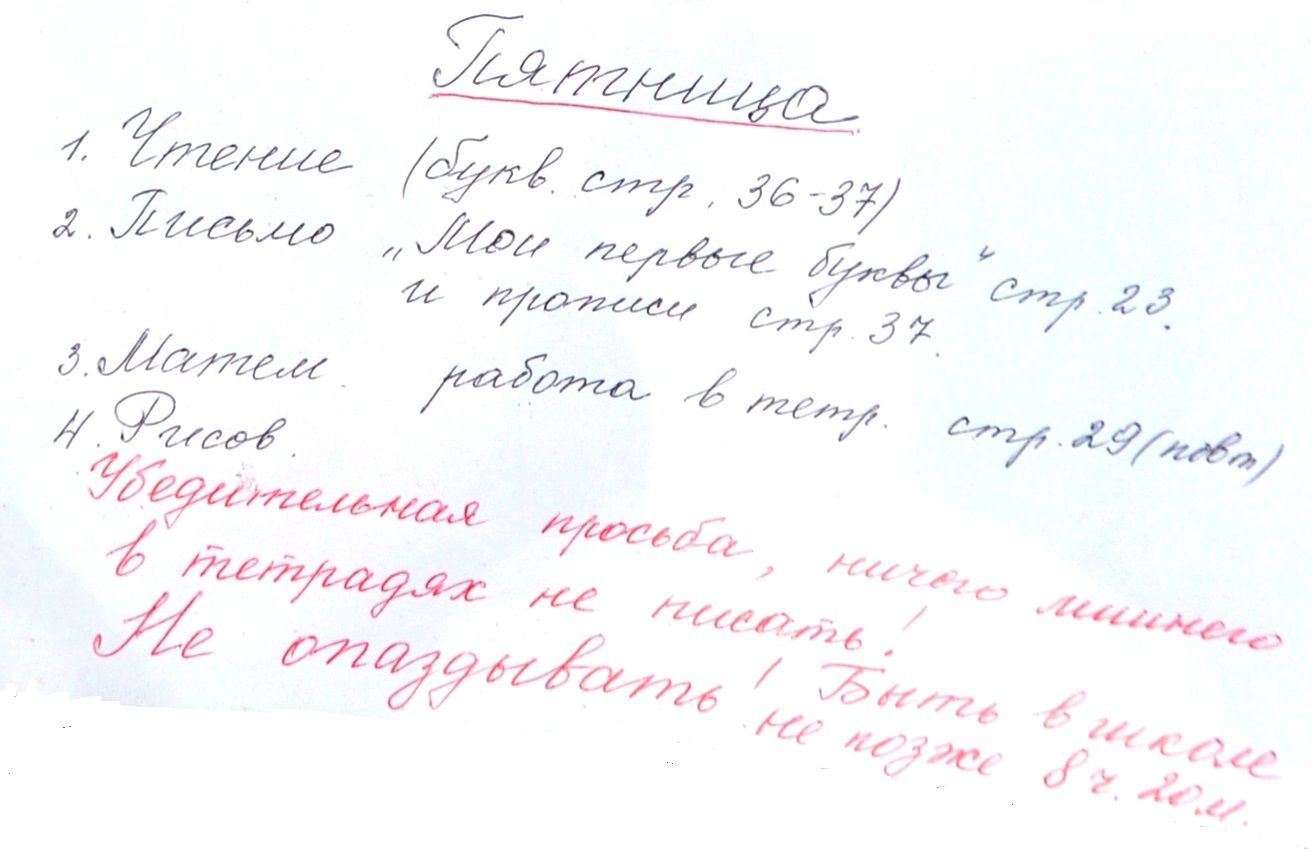 Пятница
1. Чтение (букв. стр. 36-37)
2. Письмо „Мои первые буквы“ стр. 23.
и прописи стр. 37.
3. Матем. работа в тетр. стр. 29 (повт)
4. Рисов.
Убедительная просьба, ничего лишнего
в тетрадях не писать!
Не опаздывать! Быть в школе
не позже 8 ч. 20 м.